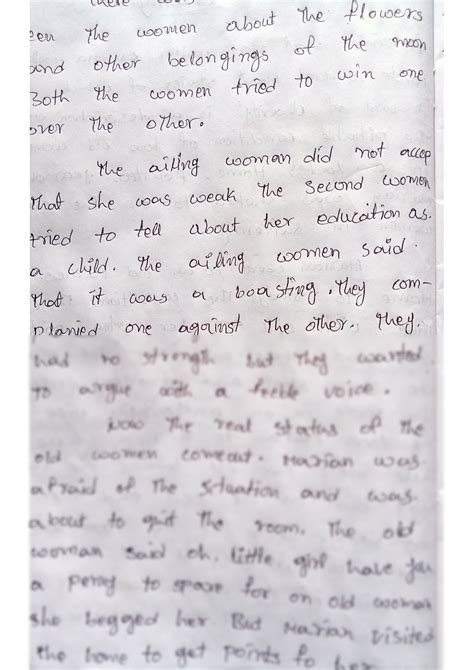 the women about the flowers
and other belongings of the moon
Both the women tried to win one
over the other.
The ailing woman did not accep
that she was weak The second women
tried to tell about her education as.
a child. The ailing women said.
that it was a boasting. They com-
planied one against the other. They.
had no strength but they wanted
to argue with a feeble voice.
Now the real status of the
old women comeout. Marian was
afraid of the situation and was.
about to quit the room. The old
woman said oh, little girl have
a penny to spare for on old woman
she begged her But Marian visited
the home to get points to her